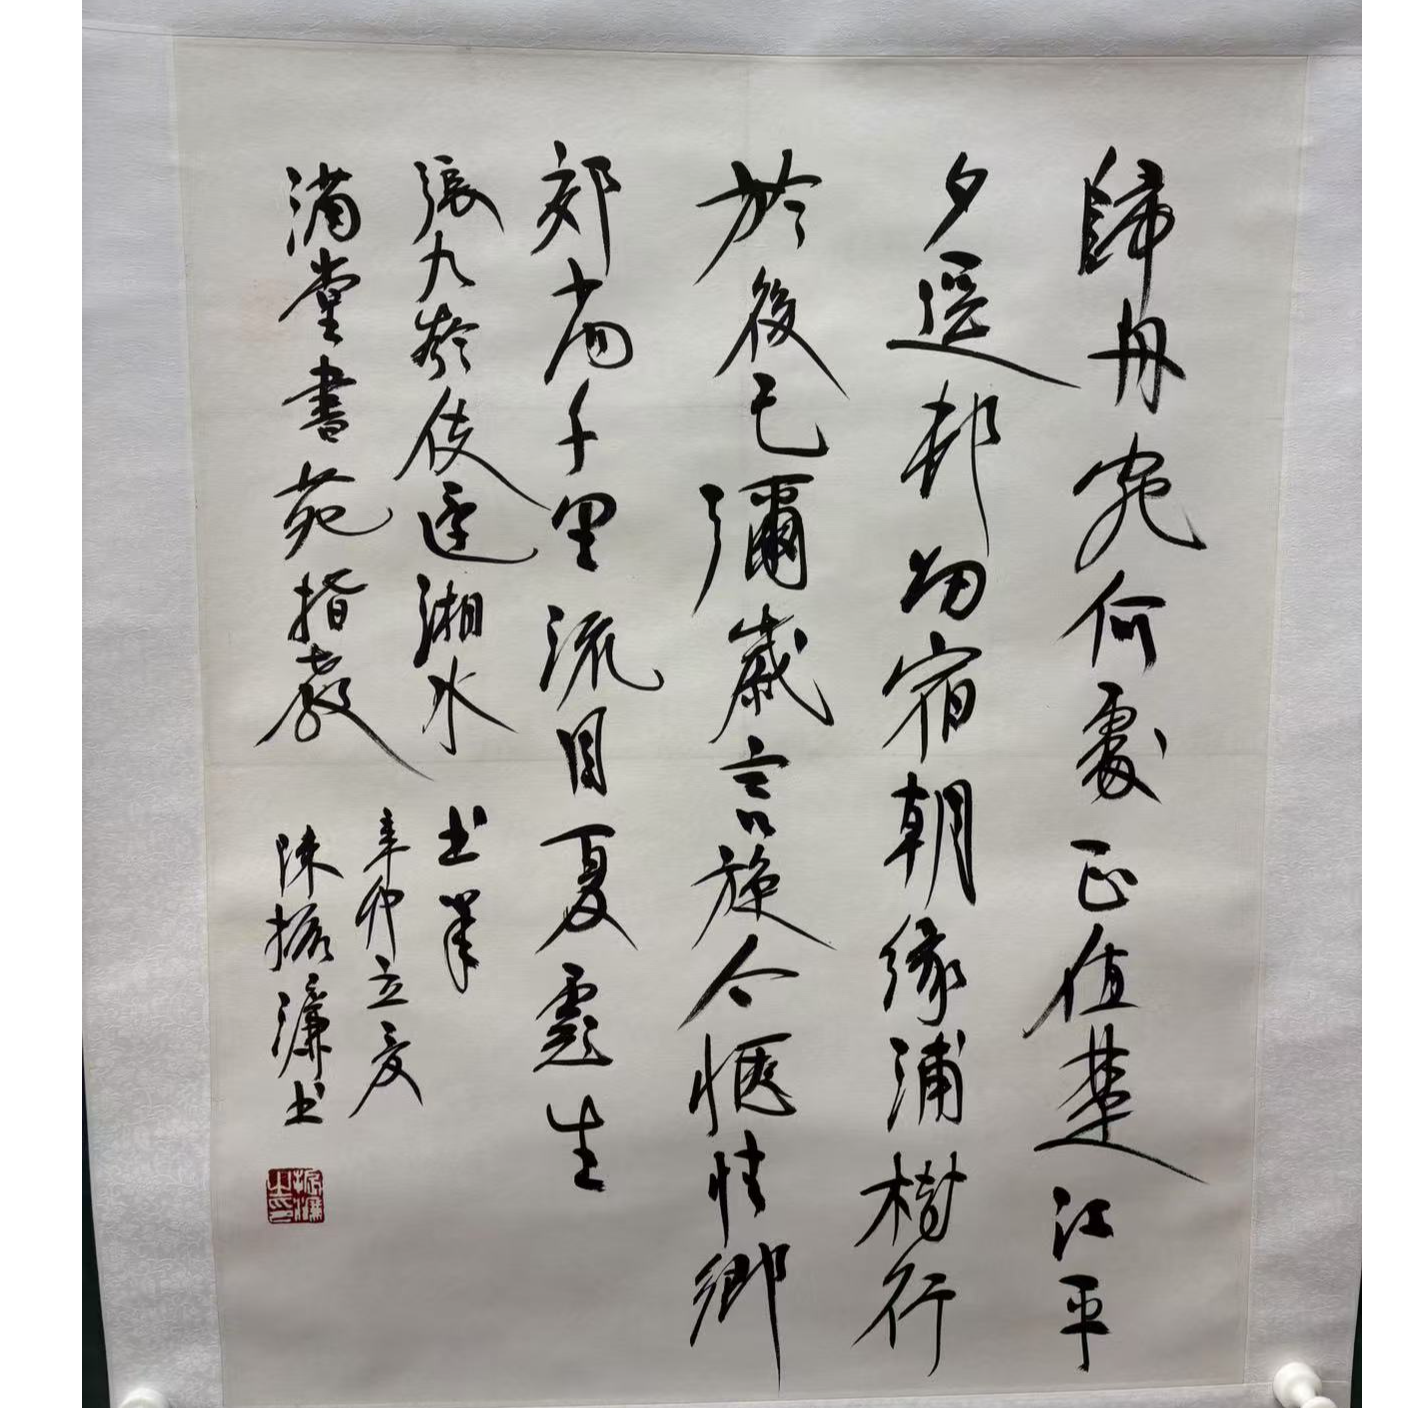 歸舟宛何處正值楚江平
夕邨宿朝緣浦樹行
於後已彌歲言旋今愜情鄉
郊尚千里流目夏生
張九齡使還湘水
辛卯立夏
滿堂書苑指教
陳振濂书